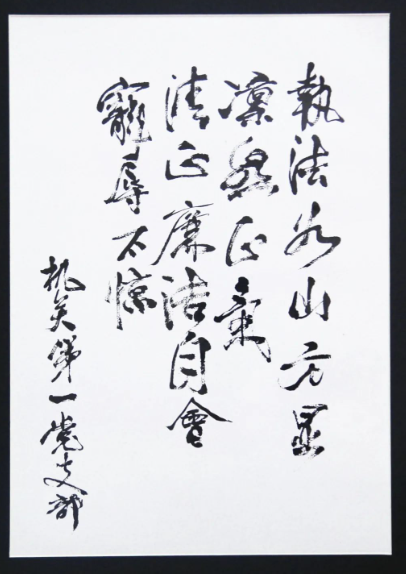 執法如山方显
凛然正氣
清正廉洁自會
寵辱不惊
机关第一党支部